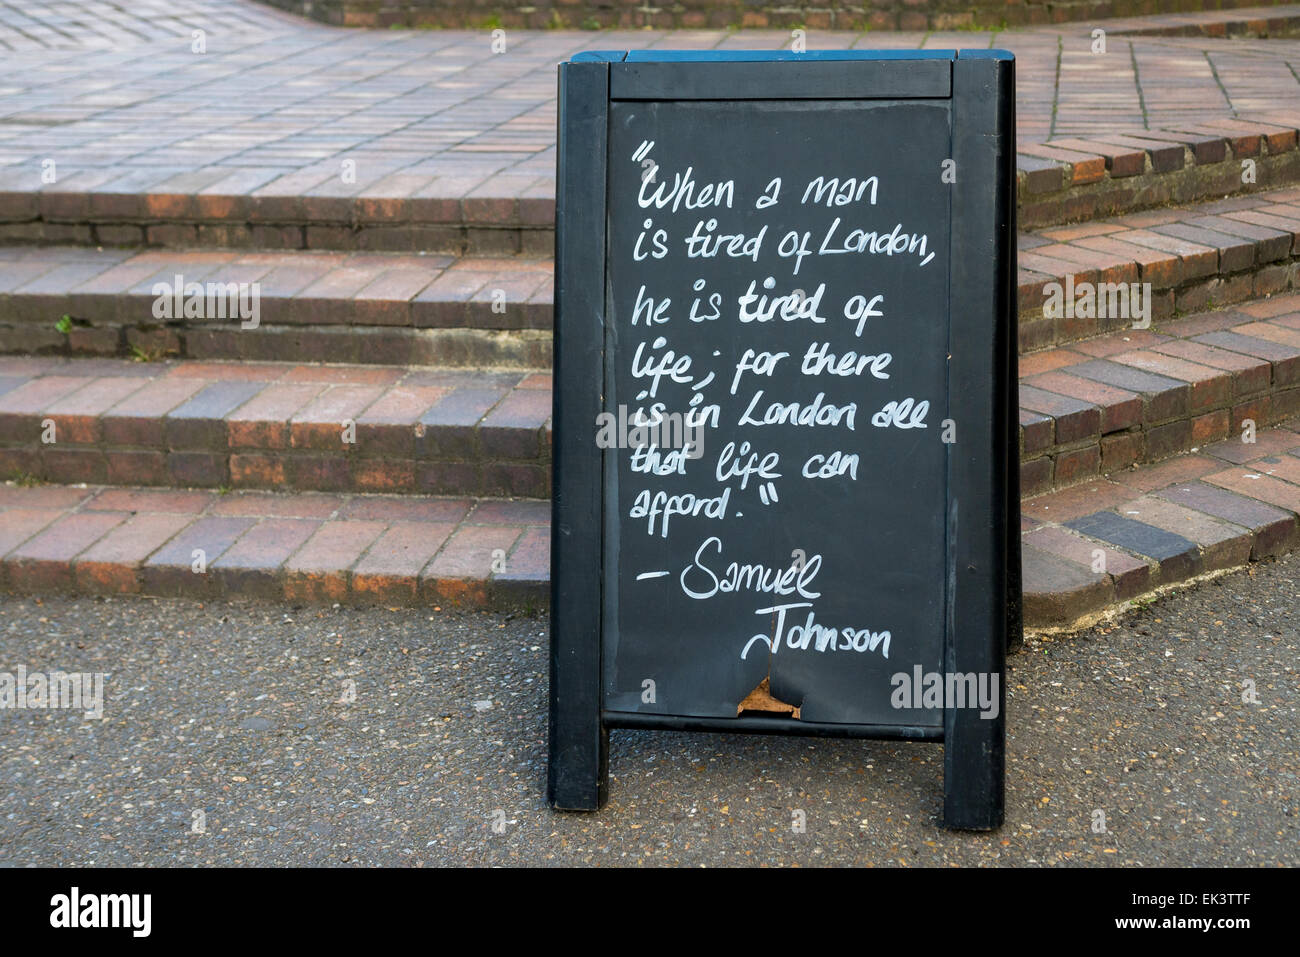 "When a man
is tired of London,
he is tired of
life; for there
is in London all
that life can
afford."
- Samuel
Johnson
alamy
alamy
Image ID: EK3TTF
www.alamy.com